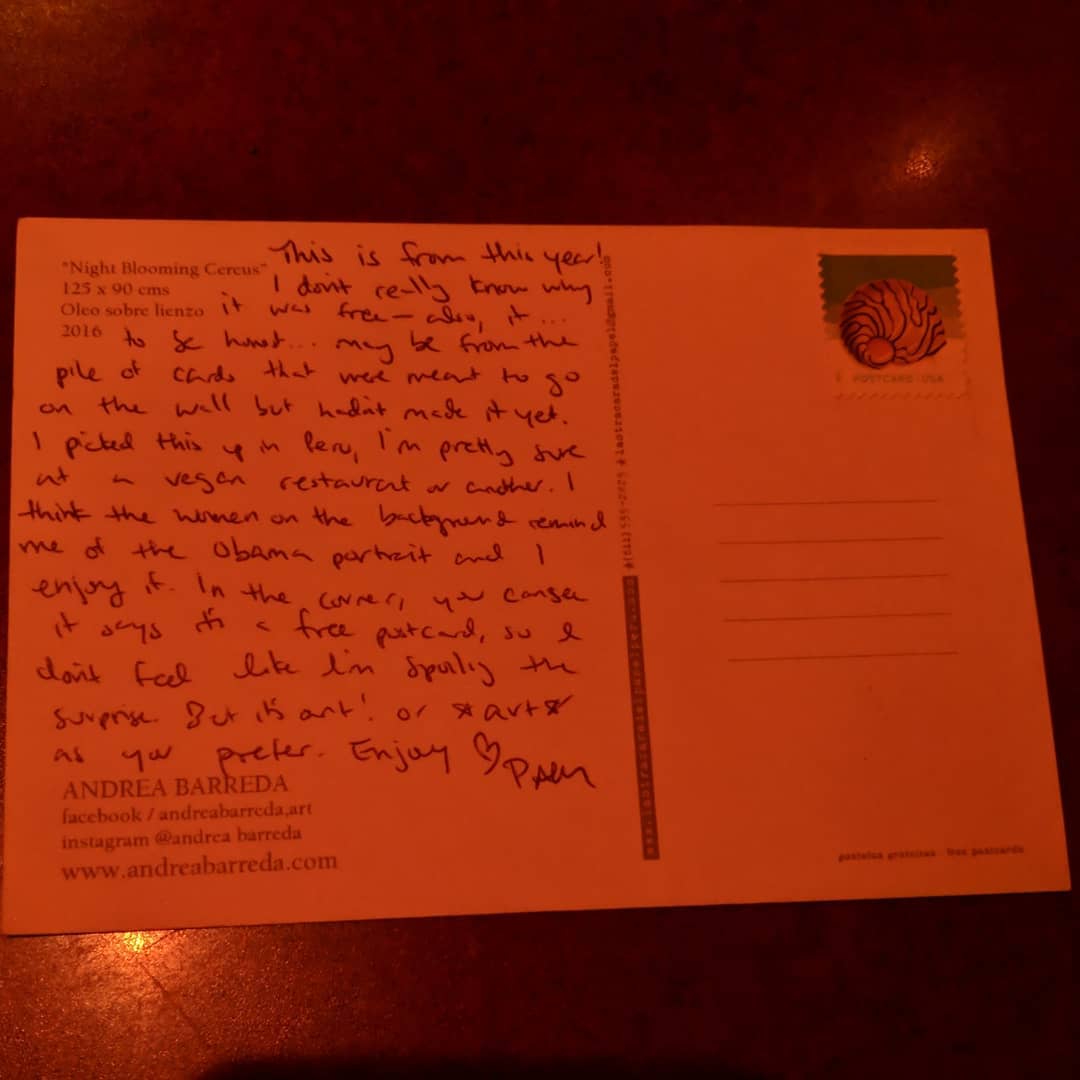 "Night Blooming Cereus"
125 x 90 cms
Oleo sobre lienzo
2016
This is from this year!
I don't really know why
it was free – also, it ...
to be honest... may be from the
pile of cards that were meant to go
on the wall but hadn't made it yet.
I picked this up in Peru, I'm pretty sure
at a vegan restaurant or another. I
think the women on the background remind
me of the Obama portrait and I
enjoy it. In the corner, you can see
it says it's a free postcard, so I
don't feel like I'm spoiling the
surprise. But it's art! or *art*
as you prefer. Enjoy ♡ PAM
ANDREA BARREDA
facebook / andreabarreda,art
instagram @andrea barreda
www.andreabarreda.com
POSTCARD USA
postales gratuitas free postcards